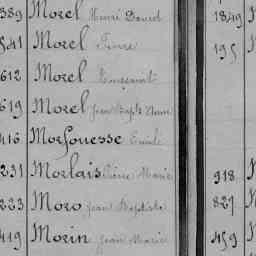 389 Morel Henri David
541 Morel Pierre
612 Morel Toussaint
619 Morel Jean Bapte
416 Morfouesse Emile
231 Morlais Pierre Marie
223 Moro Jean Baptiste
419 Morin Jean Marie
1849
195
918
827
459